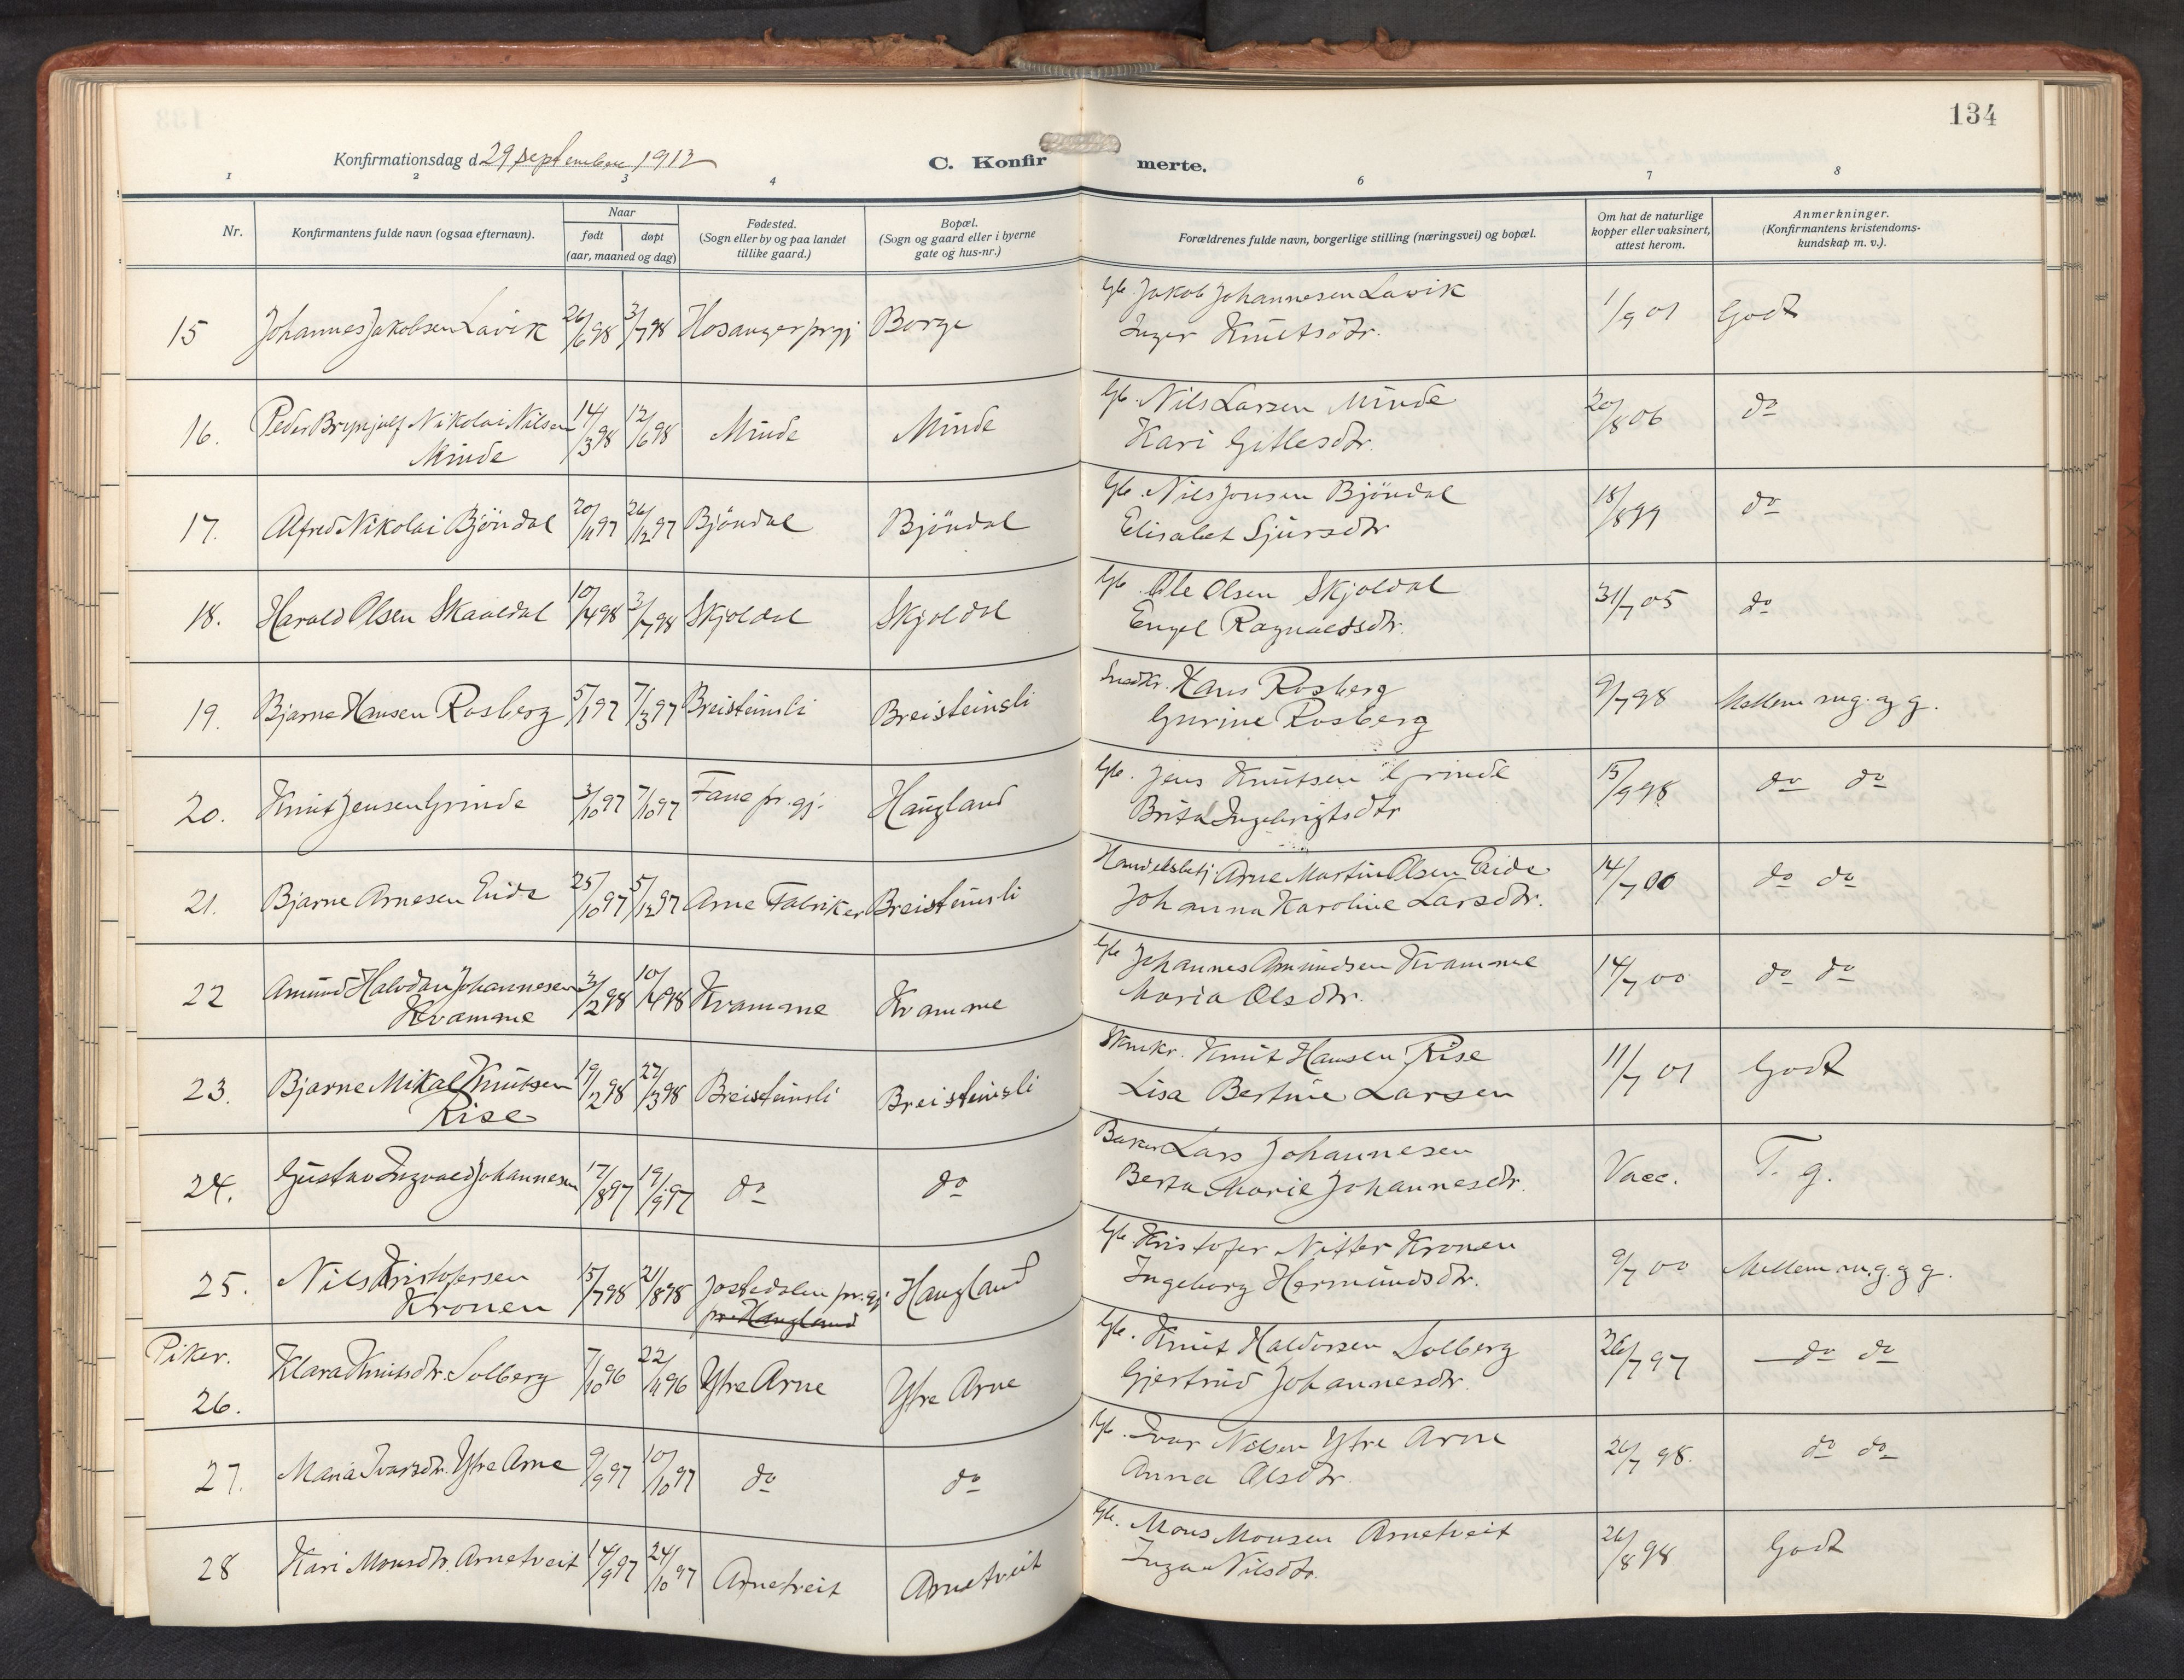 134
Konfirmationsdag d. 29 september 1912
C. Konfirmerte.
1 2 3 4 6 7 8
Nr.
Konfirmantens fulde navn (ogsaa efternavn).
Naar
født
døpt
(aar, maaned og dag)
Fødested.
(Sogn eller by og paa landet
tillike gaard.)
Bopæl.
(Sogn og gaard eller i byerne
gate og hus-nr.)
Forældrenes fulde navn, borgerlige stilling (næringsvei) og bopæl.
Om hat de naturlige
kopper eller vaksinert,
attest herom.
Anmerkninger.
(Konfirmantens kristendoms-
kundskap m. v.).
15 Johannes Jakobsen Lavik 26/6 98 3/7 98 Hosanger prgj Borge Gb. Jakob Johannesen Lavik 1/9 01 Godt
Inger Knutsdtr.
16. Peder Brynjulf Nikolai Nilsen 14/3 98 12/6 98 Minde Minde Gb. Nils Larsen Minde 20/8 06 do
Minde Kari Gitlesdtr.
17. Alfred Nikolai Bjöndal 20/11 97 26/12 97 Bjöndal Bjöndal Gb. Nils Jonsen Bjöndal 18/8 99 do
Elisabet Sjursdtr
18. Harald Olsen Skaaldal 10/4 98 3/7 98 Skjoldal Skjoldal Gb. Ole Olsen Skjoldal 31/7 05 do
Engel Ragnaldsdtr.
19. Bjarne Hansen Rosberg 5/1 97 7/3 97 Breisteinsli Breisteinsli Snedkr. Hans Rosberg 9/7 98 Mellem mg. og g.
Gurine Rosberg
20. Knut Jensen Grinde 3/10 97 7/10 97 Fane pr.gj. Haugland Gb. Jens Knutsen Grinde 15/9 98 do do
Brita Ingebrigtsdtr
21. Bjarne Arnesen Eide 25/10 97 5/12 97 Arne Fabriker Breisteinsli Handelsbetj. Arne Martin Olsen Eide 14/7 00 do do
Johanna Karoline Larsdtr.
22 Amund Halvdan Johannesen 3/2 98 10/4 98 Kvamme Kvamme Gb. Johannes Amundsen Kvamme 14/7 00 do do
Kvamme Maria Olsdtr.
23. Bjarne Mikal Knutsen 19/2 98 27/3 98 Breisteinsli Breisteinsli Knut Hansen Rise 11/7 01 Godt
Rise Lisa Bertine Larsen
24. Gustav Ingvald Johannesen 17/8 97 19/9 97 do do Baker Lars Johannesen Vacc. T. g.
Berta Marie Johannesdtr.
25. Nils Kristofersen 15/7 98 21/8 98 Jostedalen pr.gj. Haugland Gb. Kristofer Nitter Kronen 9/7 00 Mellem m.g. og g.
Kronen pr. Haugland Ingeborg Hermundsdtr.
Piker.
26. Klara Knutsdtr. Solberg 7/10 96 22/11 96 Ytre Arne Ytre Arne Gb. Knut Haldorsen Solberg 26/7 97 do do
Gjertrud Johannesdtr.
27. Maria Ivarsdtr. Ytre Arne 9/9 97 10/10 97 do do Gb. Ivar Nilsen Ytre Arne 26/7 98. do do
Anna Olsdtr.
28 Kari Monsdtr. Arnetveit 14/9 97 24/10 97 Arnetveit Arnetveit Gb. Mons Monsen Arnetveit 26/8 98 Godt
Inga Nilsdtr.